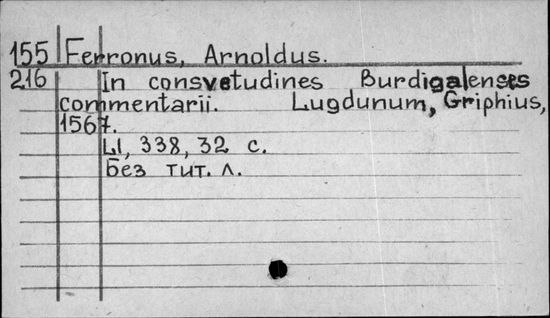 155 Ferronus, Arnoldus.
216 In consvetudines Burdigalenses
commentarii. Lugdunum, Griphius,
1567.
LI, 338, 32 с.
Без тит. л.